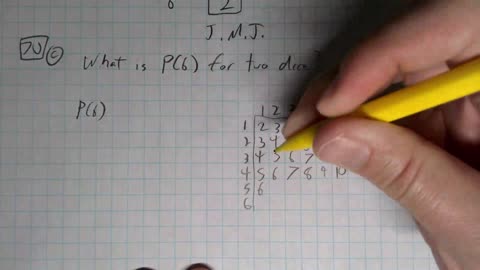 2
J.M.J.
70 c
What is P(6) for two dice?
P(6)
1 2
1 2 3
2 3 4
3 4 5 6 7
4 5 6 7 8 9 10
5 6
6